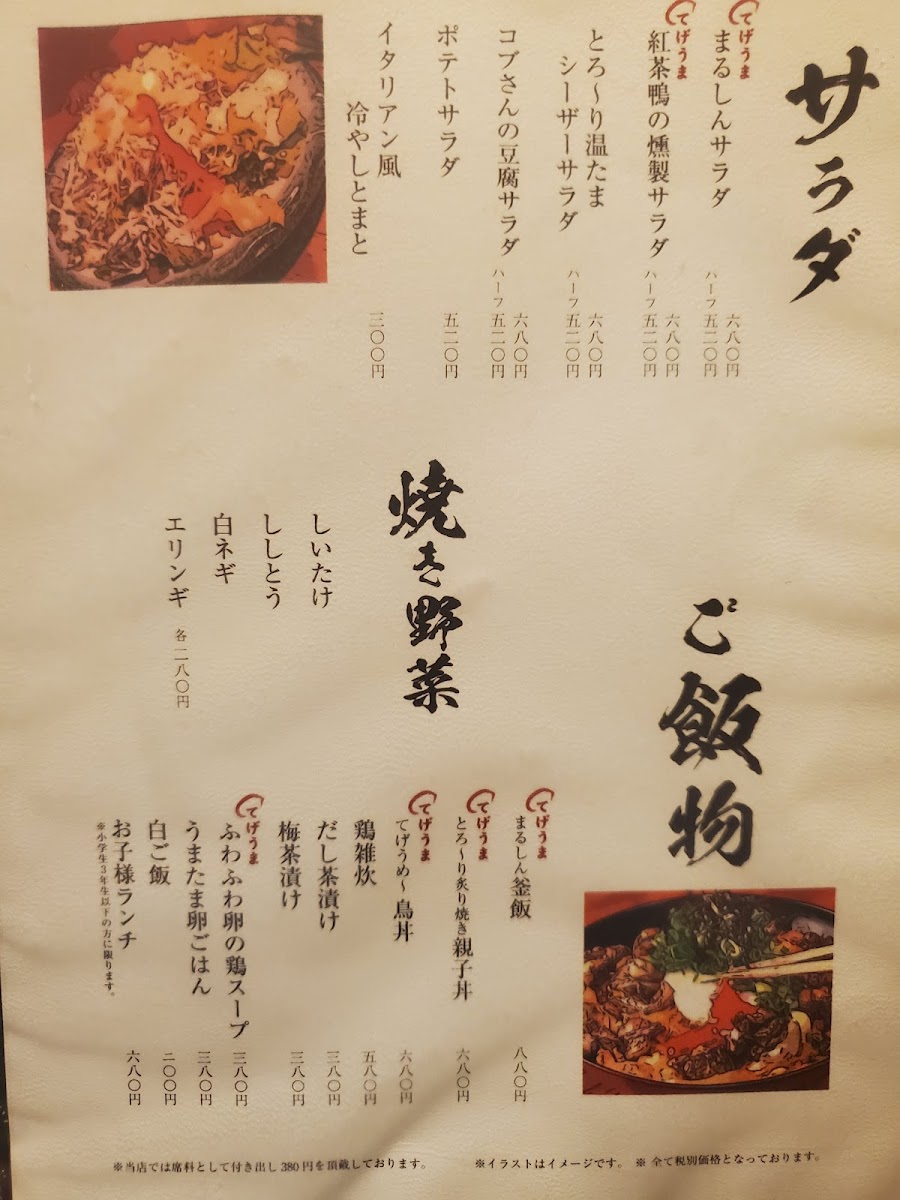 サラダ
てげうま
まるしんサラダ
六八〇円
ハーフ 五二〇円
てげうま
紅茶鴨の燻製サラダ
六八〇円
ハーフ 五二〇円
とろ〜り温たま
シーザーサラダ
六八〇円
ハーフ 五二〇円
コブさんの豆腐サラダ
六八〇円
ハーフ 五二〇円
ポテトサラダ
五二〇円
イタリアン風
冷やしとまと
三〇〇円
焼き野菜
しいたけ
ししとう
白ネギ
エリンギ
各二八〇円
ご飯物
てげうま
まるしん釜飯
八八〇円
てげうま
とろ〜り炙り焼き親子丼
六八〇円
てげうま
てげうめ〜鳥丼
六八〇円
鶏雑炊
五八〇円
だし茶漬け
三八〇円
梅茶漬け
三八〇円
てげうま
ふわふわ卵の鶏スープ
三八〇円
うまたま卵ごはん
三八〇円
白ご飯
二〇〇円
お子様ランチ
六八〇円
※小学生3年生以下の方に限ります。
※当店では席料として付き出し380円を頂戴しております。
※イラストはイメージです。
※全て税別価格となっております。